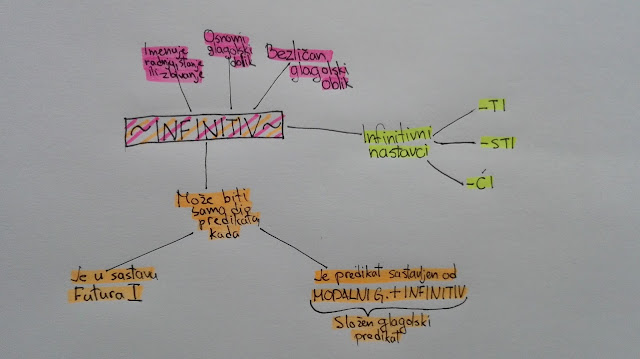 Imenuje
radnju, stanje
ili zbivanje
Osnovni
glagolski
oblik
Bezličan
glagolski
oblik
~INFINITIV~
Infinitivni
nastavci
-TI
-STI
-ĆI
Može biti
samo dio
predikata,
kada
Je u sastavu
Futura I
Je predikat sastavljen od
MODALNI G. + INFINITIV
Složen glagolski
predikat